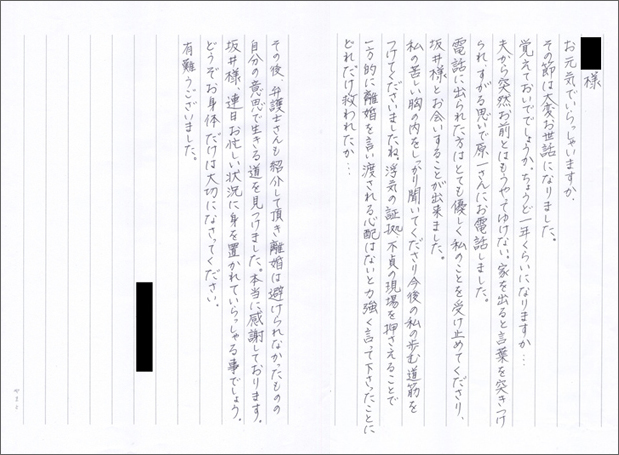 様
お元気でいらっしゃいますか、
その節は大変お世話になりました。
覚えておいででしょうか、ちょうど一年くらいになりますか…
夫から突然お前とはもうやてゆけない。家を出ると言葉を突きつけ
られ、すがる思いで原一さんにお電話しました。
電話に出られた方はとても優しく私のことを受け止めてくださり、
坂井様とお会いすることが出来ました。
私の苦しい胸の内をしっかり聞いてくださり今後の私の歩む道筋を
つけてくださいましたね。浮気の証拠、不貞の現場を押さえることで
一方的に離婚を言い渡される心配はないと力強く言って下さったことに
どれだけ救われたか…
その後、弁護士さんも紹介して頂き離婚は避けられなかったものの
自分の意思で生きる道を見つけました。本当に感謝しております。
坂井様、連日お忙しい状況に身を置かれていらっしゃる事でしょう。
どうぞお身体だけは大切になさってください。
有難うございました。